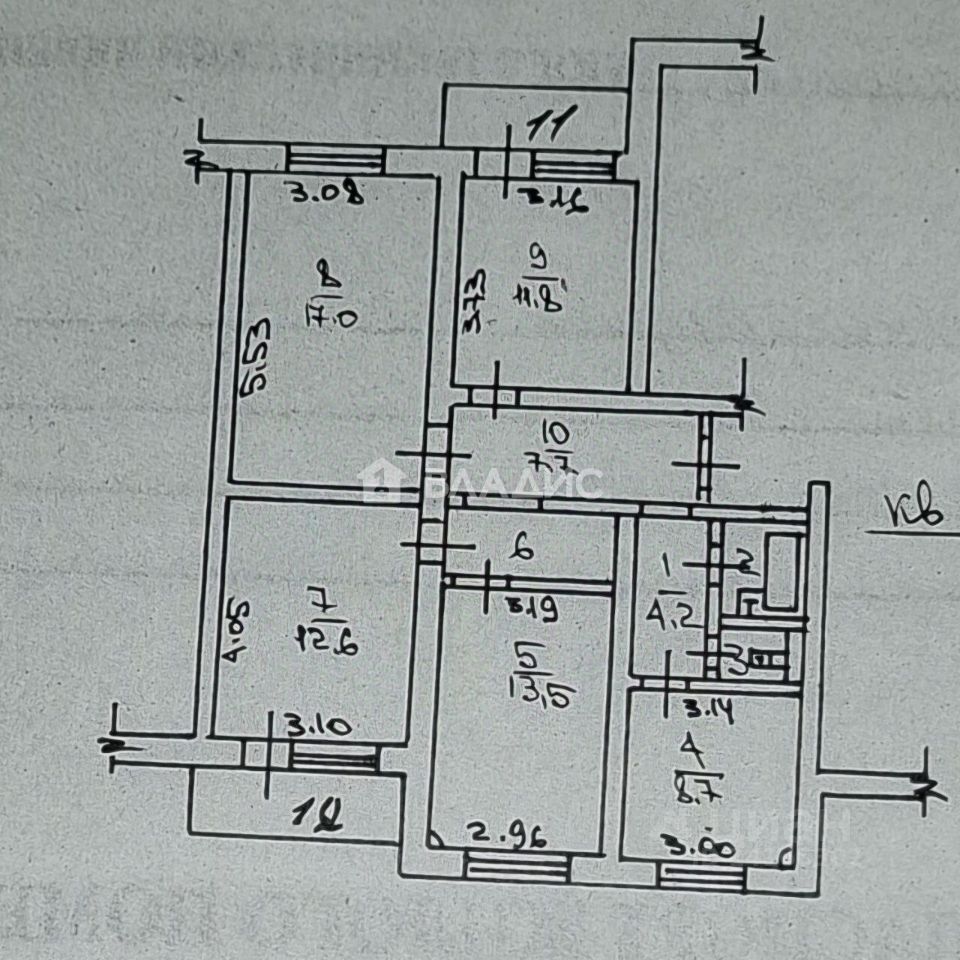 11
3.08
3.16
9
11.8
8
17.0
3.73
5.53
10
7.7
БЛАДИС
кв
6
1
4.2
2
7
12.6
4.05
3.19
5
13,5
3
3.14
3.10
4
8.7
12
2.96
3.00